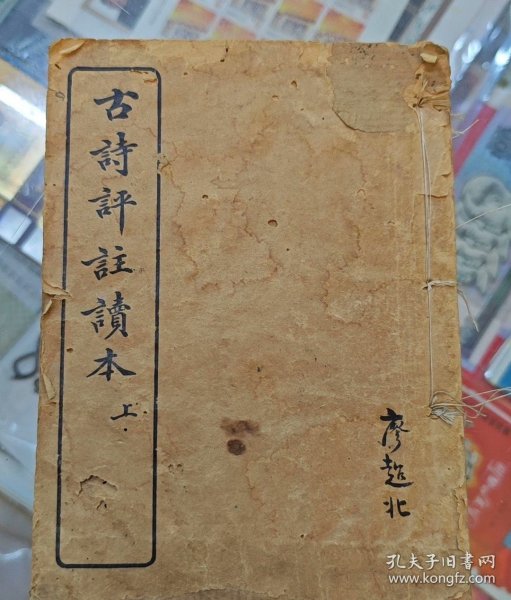 古詩評註讀本 上
廖超北
孔夫子旧书网
www.kongfz.com